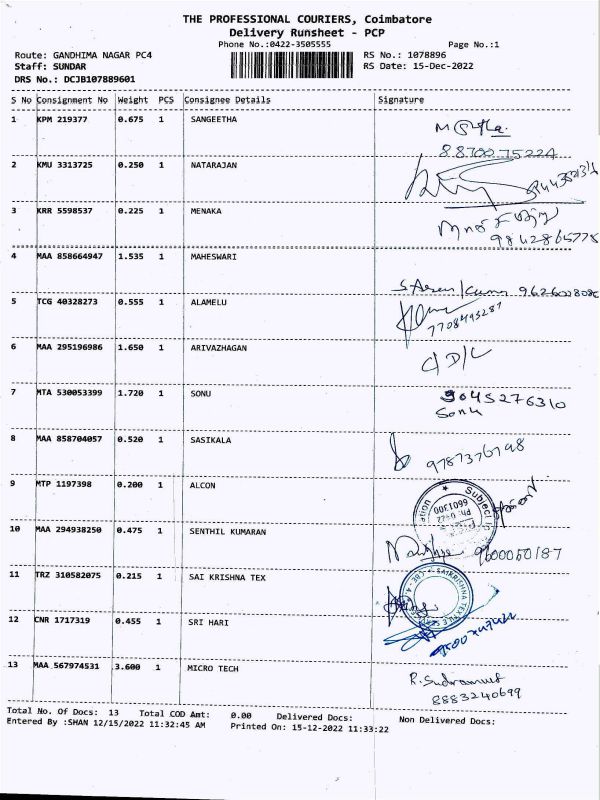 THE PROFESSIONAL COURIERS, Coimbatore
Delivery Runsheet - PCP
Phone No.:0422-3505555 Page No.:1
Route: GANDHIMA NAGAR PC4 RS No.: 1078896
Staff: SUNDAR RS Date: 15-Dec-2022
DRS No.: DCJB107889601
S No Consignment No Weight PCS Consignee Details Signature
1 KPM 219377 0.675 1 SANGEETHA
8870075224
2 KMU 3313725 0.250 1 NATARAJAN
3 KRR 5598537 0.225 1 MENAKA
9842865778
4 MAA 858664947 1.535 1 MAHESWARI
5 TCG 40328273 0.555 1 ALAMELU
7708493287
6 MAA 295196986 1.650 1 ARIVAZHAGAN
C/D/L
7 MTA 530053399 1.720 1 SONU
9045276310
Sonu
8 MAA 858704057 0.520 1 SASIKALA
9787376798
9 MTP 1197398 0.200 1 ALCON
Subject to
6601300
Ph: 0422
10 MAA 294938250 0.475 1 SENTHIL KUMARAN
9600050187
11 TRZ 310582075 0.215 1 SAI KRISHNA TEX
SAIKRISHNA TEXTILES
CBE - 4
12 CNR 1717319 0.455 1 SRI HARI
13 MAA 567974531 3.600 1 MICRO TECH
8883240699
Total No. Of Docs: 13 Total COD Amt: 0.00 Delivered Docs: Non Delivered Docs:
Entered By :SHAN 12/15/2022 11:32:45 AM Printed On: 15-12-2022 11:33:22